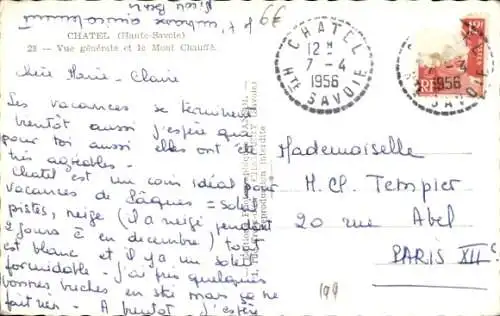 t'embrasse amicalement
6€
CHATEL (Haute-Savoie)
28 - Vue générale et le Mont Chauffé
Chère Marie-Claire
Les vacances se terminent
bientôt aussi j'espère que
pour toi aussi elles ont été
très agréables.
Chatel est un coin idéal pour
vacances de Pâques = soleil
pistes, neige (il a neigé pendant
2 jours en décembre) tout
est blanc et il y a un soleil
formidable - j'ai pris quelques
bonnes bûches en ski mais ça ne
fait rien. A bientôt j'espère
CHATEL
12H
7-4
1956
HTE SAVOIE
-4
1956
SAVOIE
RF
Reproduction interdite
Mademoiselle
M. Cl. Tempier
20 rue Abel
PARIS XIIe
199